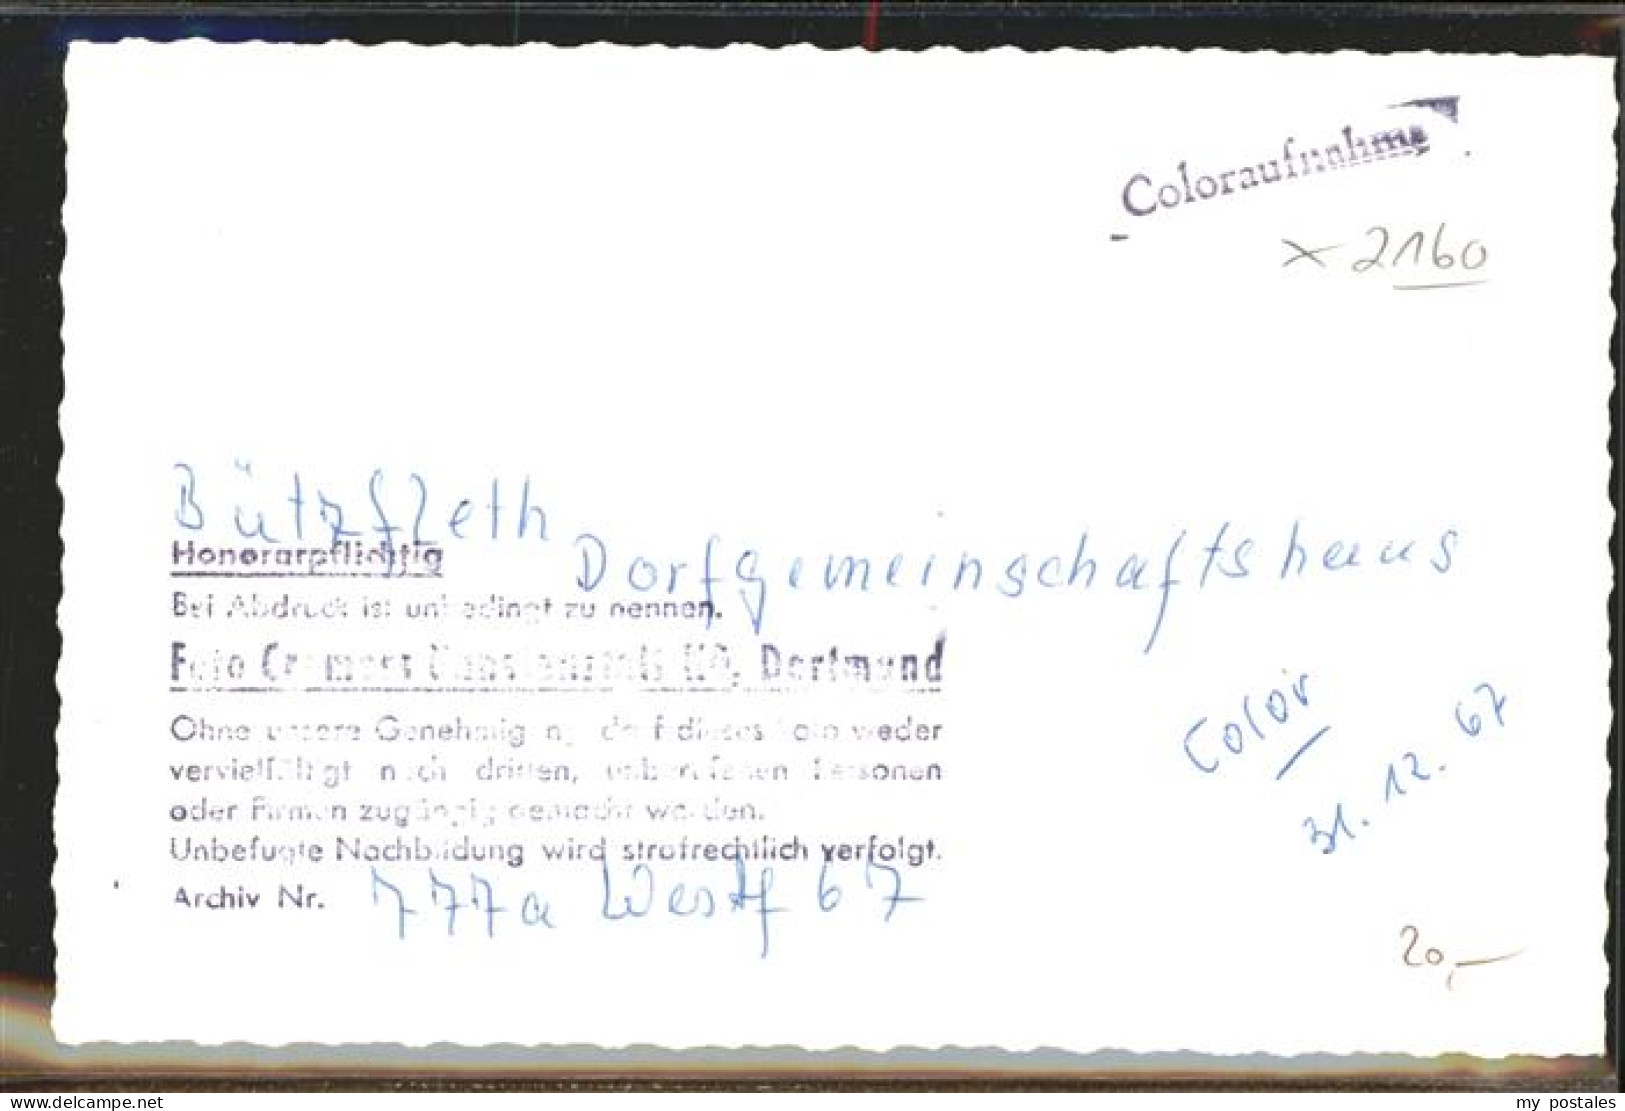 Coloraufnahme
× 2160
Bützfleth
Dorfgemeinschaftshaus
Honorarpflichtig
Bei Abdruck ist unbedingt zu nennen.
Foto Cramers Kunstanstalt KG, Dortmund
Ohne unsere Genehmigung darf dieses Foto weder
vervielfältigt noch dritten, unberufenen Personen
oder Firmen zugängig gemacht werden.
Unbefugte Nachbildung wird strafrechtlich verfolgt.
Archiv Nr. 777a Westf 67
Color
31. 12. 67
20,—
www.delcampe.net
my_postales